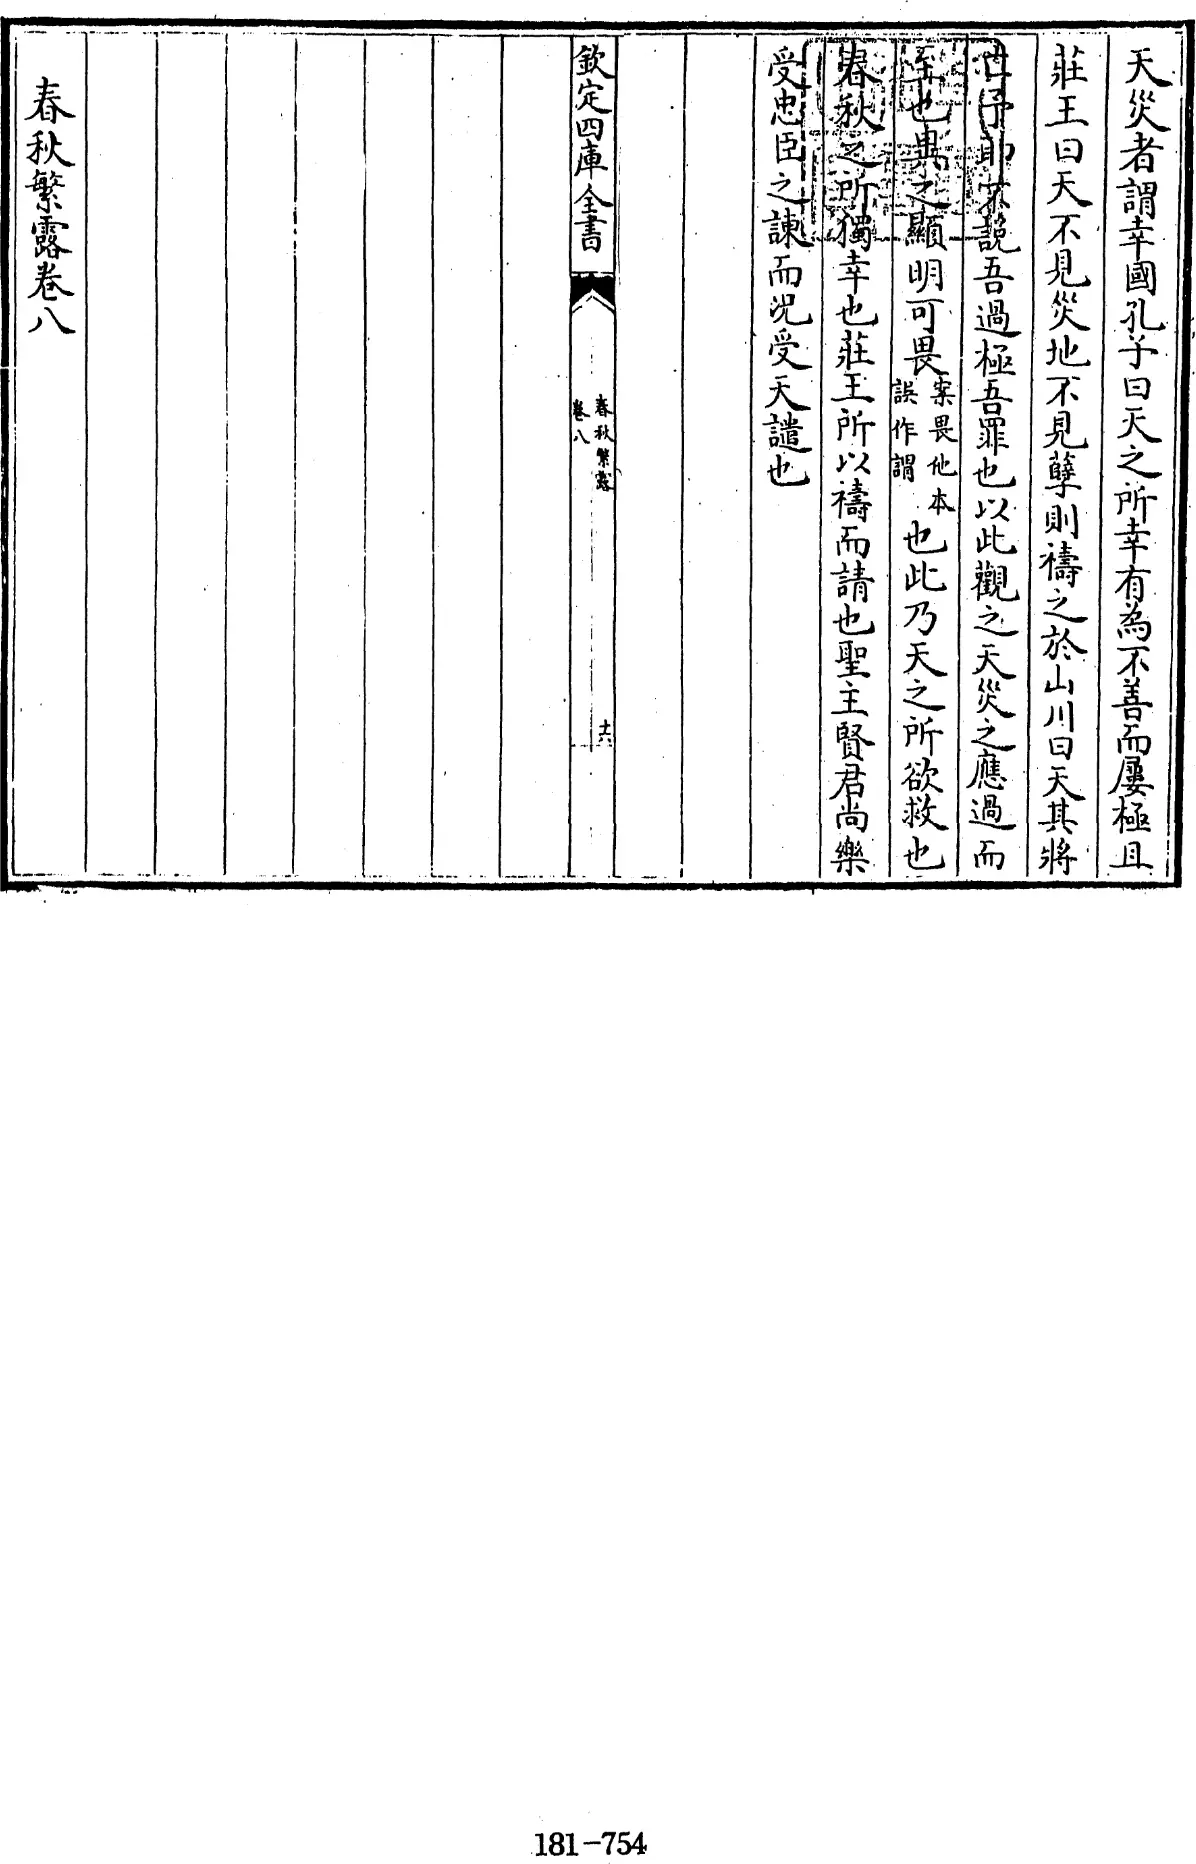 天災者謂幸國孔子曰天之所幸有為不善而屢極且
莊王曰天不見災地不見孽則禱之於山川曰天其將
亡予耶不說吾過極吾罪也以此觀之天災之應過而
至也異之顯明可畏案畏他本誤作謂也此乃天之所欲救也
春秋之所獨幸也莊王所以禱而請也聖主賢君尚樂
受忠臣之諫而况受天譴也
欽定四庫全書
春秋繁露
卷八
十六
春秋繁露卷八
181-754